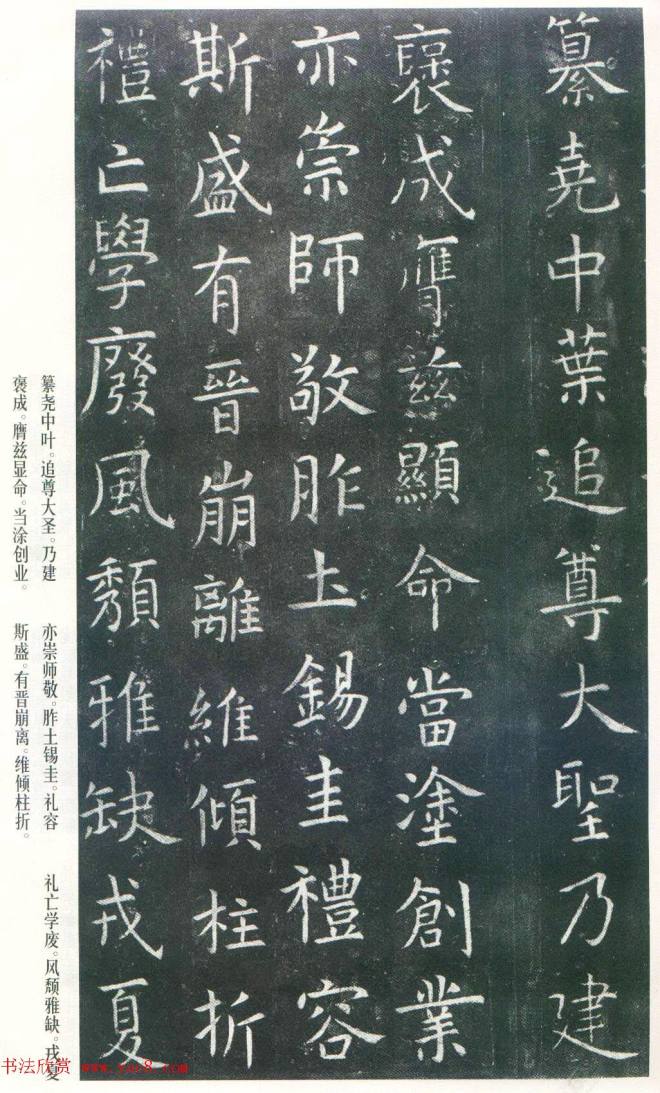 纂堯中葉追尊大聖乃建
褒成膺茲顯命當塗創業
亦崇師敬胙土錫圭禮容
斯盛有晉崩離維傾柱折
禮亡學廢風頹雅缺戎夏
纂尧中叶。追尊大圣。乃建
褒成。膺兹显命。当涂创业。
亦崇师敬。胙土锡圭。礼容
斯盛。有晋崩离。维倾柱折。
礼亡学废。风颓雅缺。戎夏
书法欣赏 www.yac8.com